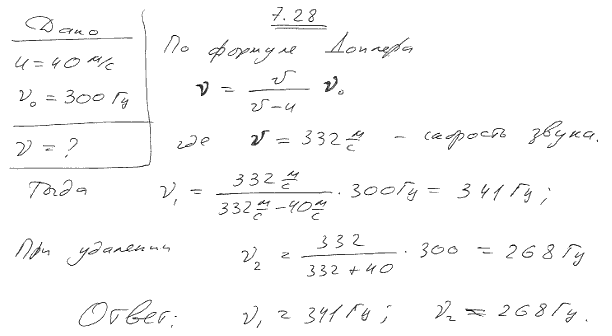 7.28
Дано
u = 40 м/с
ν₀ = 300 Гц
ν = ?
По формуле Доплера
ν = v / (v − u) ν₀
где v = 332 м/с – скорость звука.
Тогда ν₁ = (332 м/с) / (332 м/с − 40 м/с) · 300 Гц = 341 Гц;
При удалении ν₂ = 332 / (332 + 40) · 300 = 268 Гц
Ответ: ν₁ = 341 Гц; ν₂ = 268 Гц.